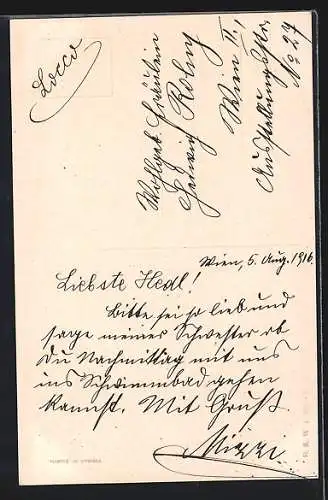 Locco
Wohlgeb. Fräulein
Wien II.,
Ausstellungsstr.
No 27
Wien, 5. Aug. 1916.
Liebste Hedl!
Bitte sei so lieb und
sage meiner Schwester ob
Du Nachmittag mit uns
ins Schwimmbad gehen
kannst. Mit Gruß
Mizzi.